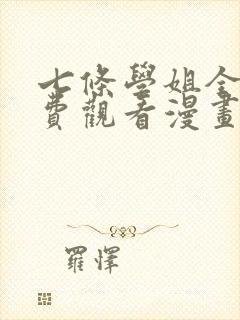 七條學姐全
費觀看漫畫
羅懌